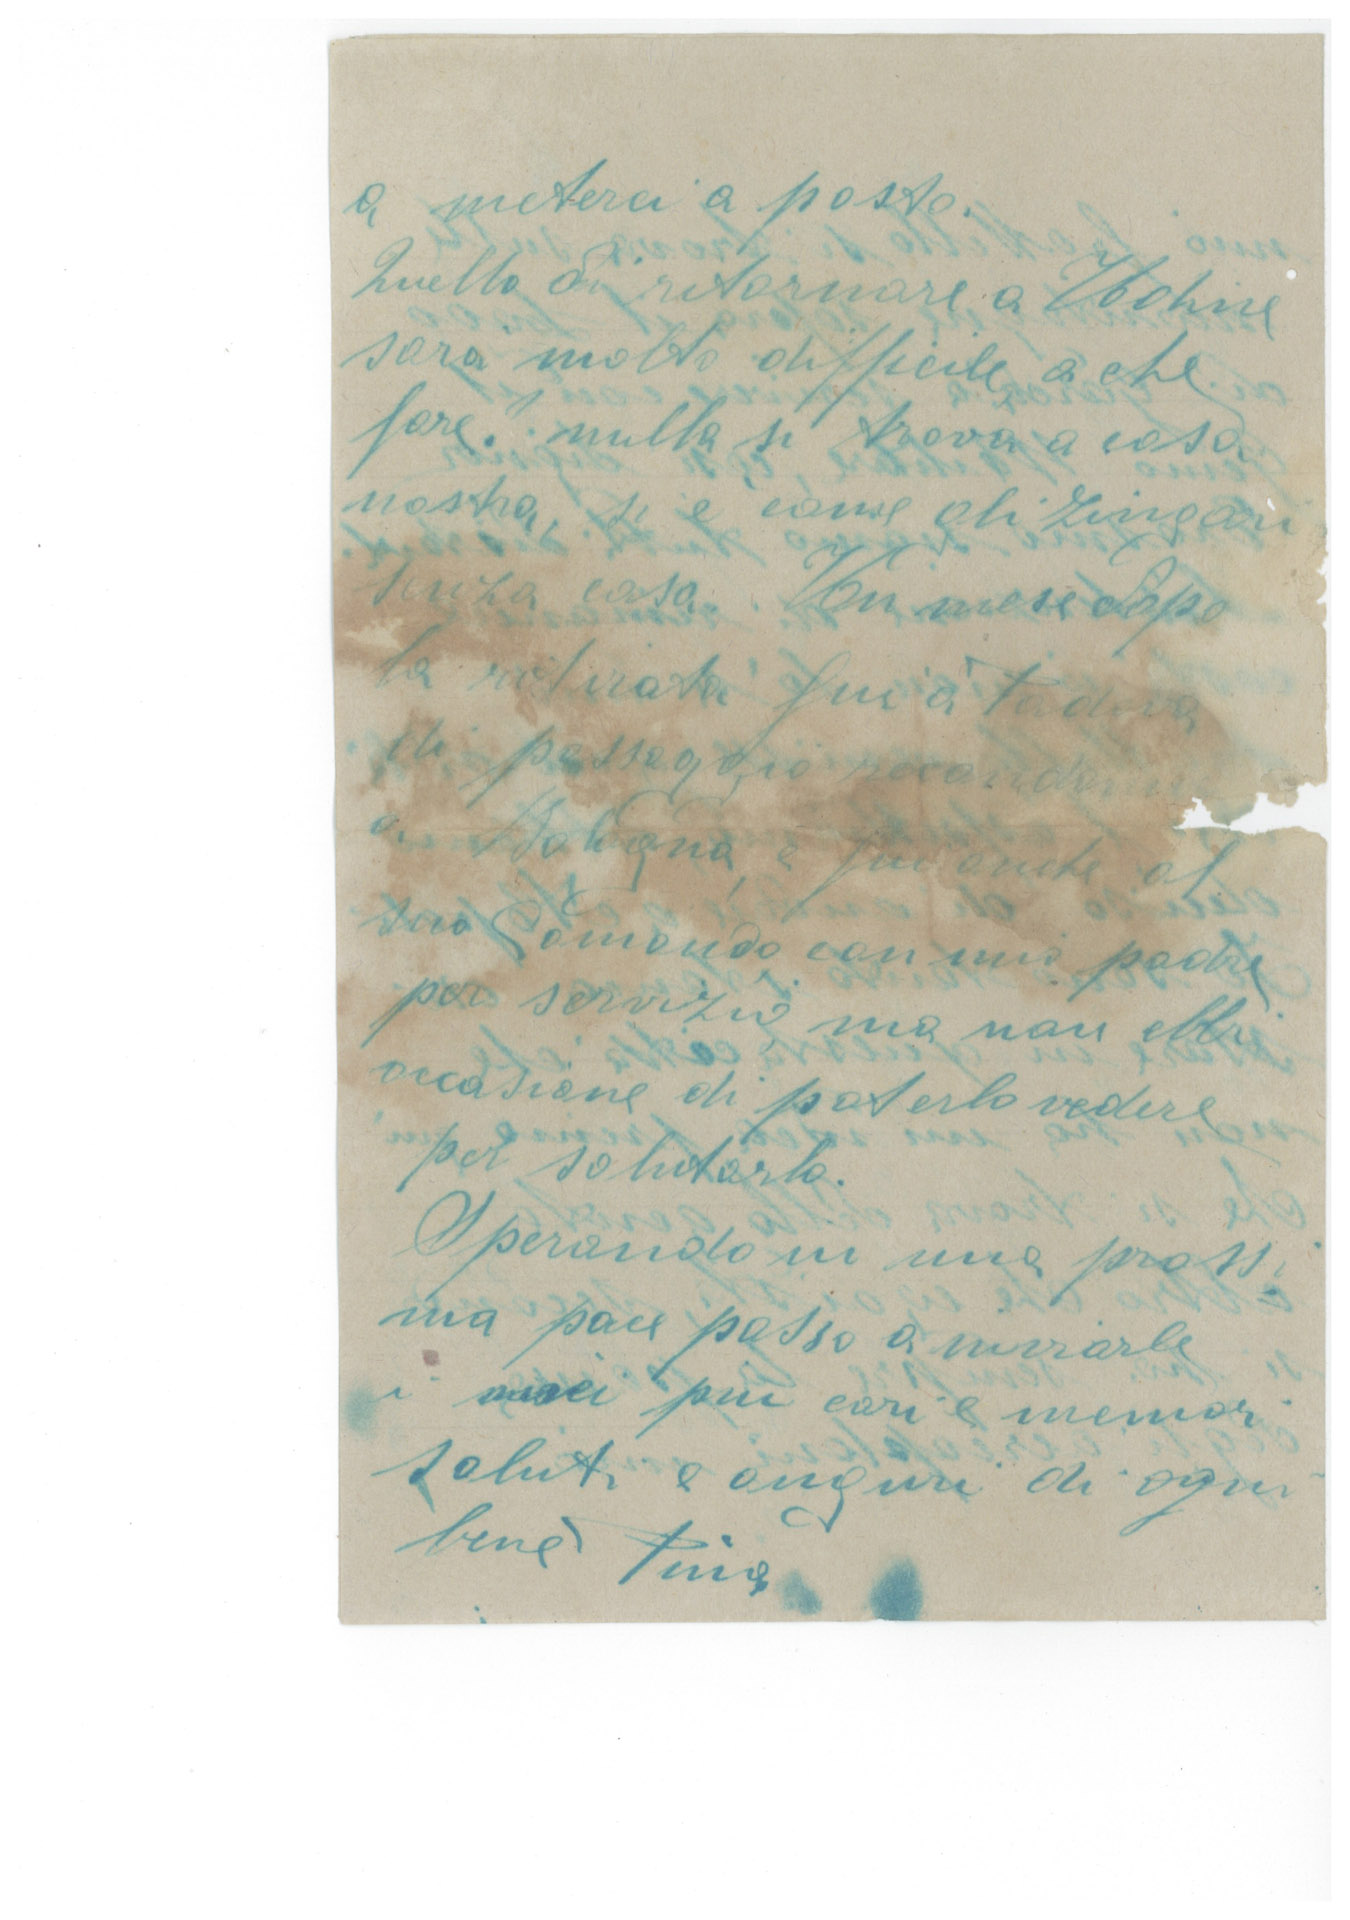 a meterci a posto.
Quello di ritornare a Udine
sara molto difficile, a che
fare. nulla si trova a casa
nostra, si e come gli zingari
senza casa. Un mese dopo
la ritirata fui a Padova
di passaggio recandomi
a Bologna, e fui anche al
suo Comando con mio padre
per servizio, ma non ebbi
occasione di poterlo vedere
per salutarlo.
Sperando in una prossi
ma pace passo a inviarle
i miei piu cari e memori
saluti e auguri di ogni
bene Pina